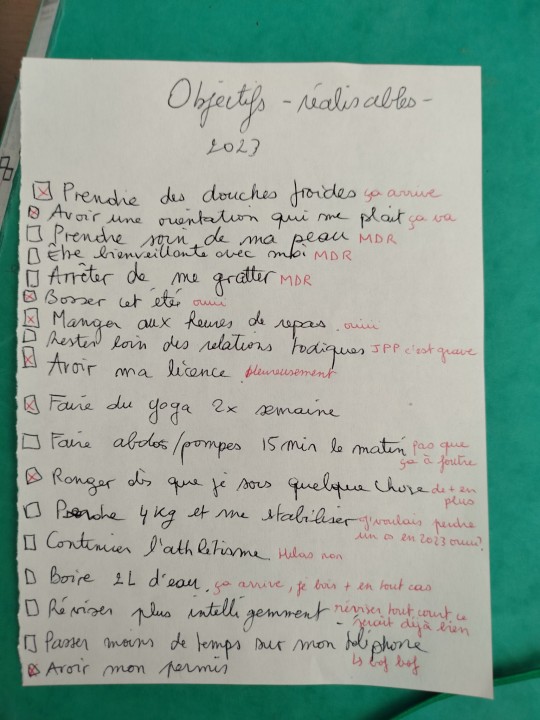 Objectifs - réalisables -
2023
Prendre des douches froides ça arrive
Avoir une orientation qui me plait ça va
Prendre soin de ma peau MDR
Être bienveillante avec moi MDR
Arrêter de me gratter MDR
Bosser cet été ouiii
Manger aux heures de repas. ouiii
Rester loin des relations toxiques JPP c'est grave
Avoir ma licence. heureusement
Faire du yoga 2x semaine
Faire abdos/pompes 15 min le matin pas que
ça à foutre
Ranger dès que je sors quelque chose de + en
plus
Prendre 4 kg et me stabiliser j'voulais perdre
un os en 2023 ouuu?
Continuer l'athlétisme. Hélas non
Boire 2L d'eau. ça arrive, je bois + en tout cas
Réviser plus intelligemment réviser tout court ce
- serait déjà bien
Passer moins de temps sur mon téléphone
↳ bof bof
Avoir mon permis